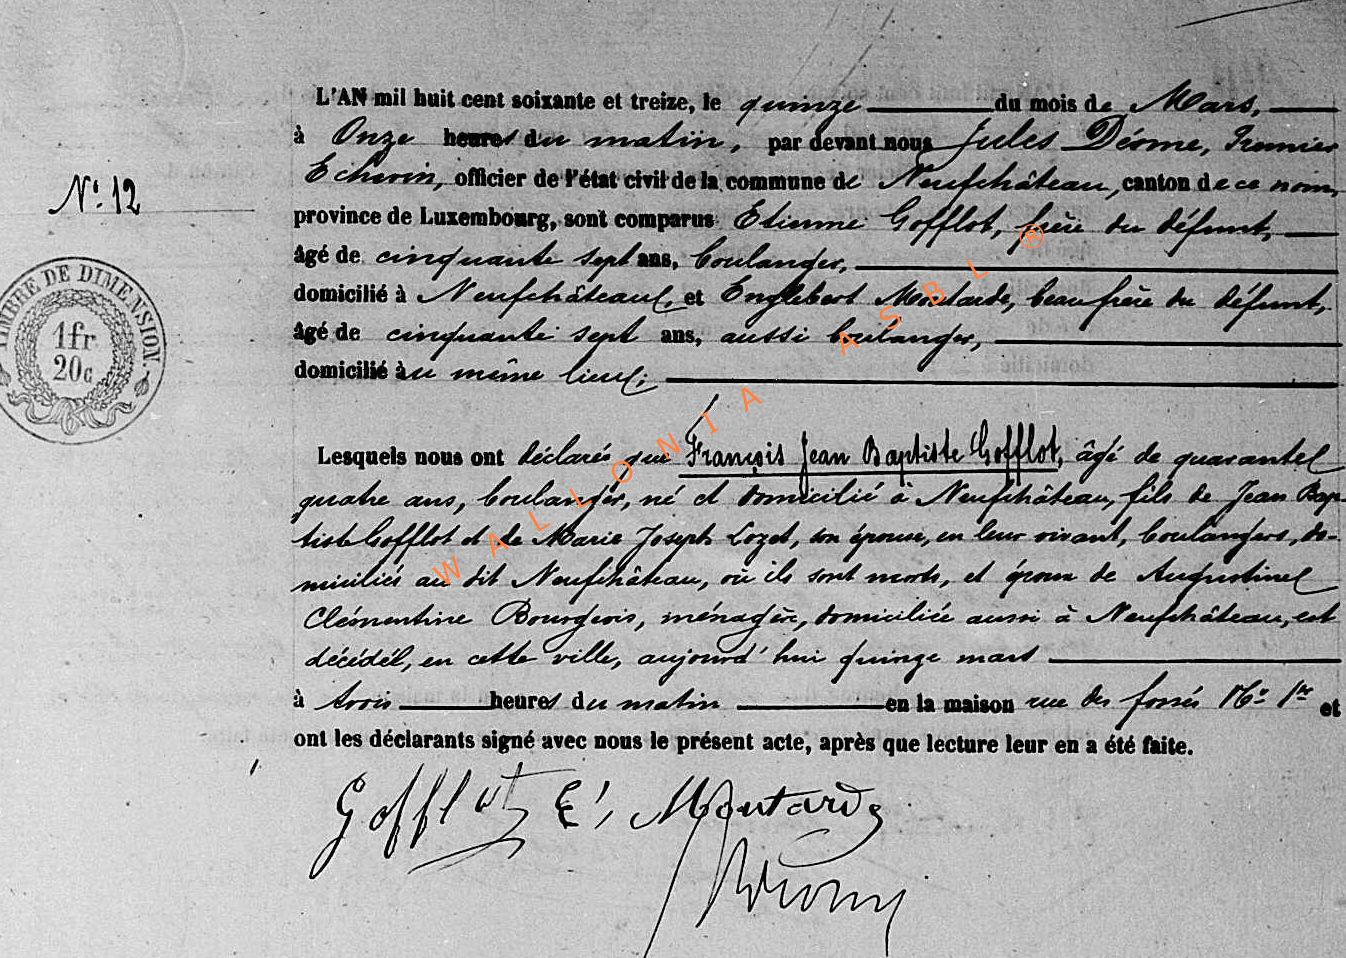 L'AN mil huit cent soixante et treize, le quinze du mois de Mars,
à Onze heures du matin, par devant nous Jules Désme, Premier
Echevin, officier de l'état civil de la commune de Neufchâteau, canton de ce nom,
N° 12
province de Luxembourg, sont comparus Etienne Gofflot, frère du défunt,
âgé de cinquante sept ans, boulanger,
domicilié à Neufchâteau, et Englebert Moutarde, beau frère du défunt,
TIMBRE DE DIMENSION.
1 fr
20 c
âgé de cinquante sept ans, aussi boulanger,
domicilié au même lieu;
Lesquels nous ont déclaré que François Jean Baptiste Gofflot, âgé de quarante
quatre ans, boulanger, né et domicilié à Neufchâteau, fils de Jean Bap-
tiste Gofflot et de Marie Joseph Lozet, son épouse, en leur vivant, boulangers, do-
miciliés au dit Neufchâteau, où ils sont morts, et époux de Augustine
Clémentine Bourgeois, ménagère, domiciliée aussi à Neufchâteau, est
décédé, en cette ville, aujourd'hui quinze mars
à trois heures du matin en la maison rue des fossés N° 1er et
ont les déclarants signé avec nous le présent acte, après que lecture leur en a été faite.
Gofflot E, Moutarde
WALLONIA ASBL ®